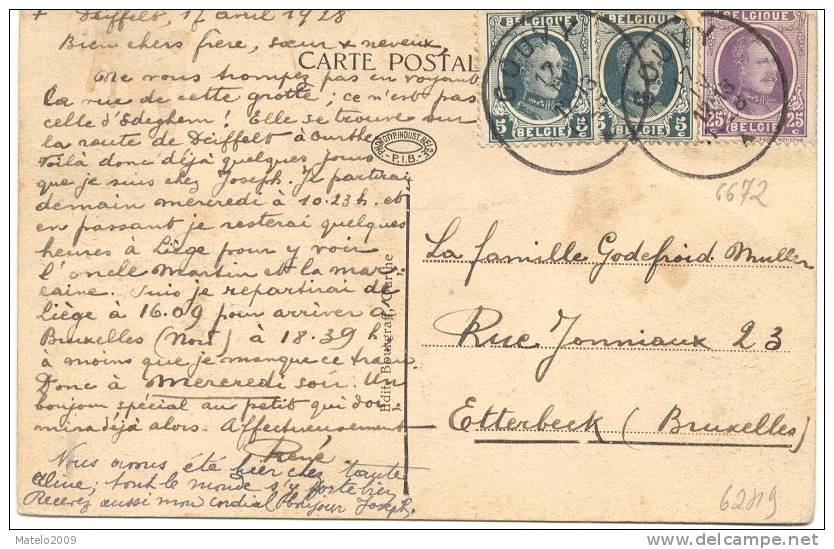 + Deiffelt, 17 avril 1928
Bien chers frère, sœur & neveux,
CARTE POSTAL
Ne vous trompez pas en voyant
la vue de cette grotte; ce n'est pas
celle d'Edeghem! Elle se trouve sur
la route de Deiffelt à Ourthe
Voilà donc déjà quelques jours
que je suis chez Joseph. Je partirai
demain mercredi à 10.23h. et
en passant je resterai quelques
heures à Liège pour y voir
l'oncle Martin et la mar
raine. Puis je repartirai de
Liège à 16.09 pour arriver à
Bruxelles (Nord) à 18.39 h
à moins que je manque ce train.
Donc à mercredi soir. Un
bonjour spécial au petit qui dor
mira déjà alors. Affectueusement
René
Nous avons été hier chez tante
Aline; tout le monde s'y porte bien
Recevez aussi mon cordial Bonjour Joseph.
PHOTOTYP. INDUST. BELGE
P.I.B.
Edit. Bourgraff, Ourthe
BELGIQUE
5c 5c
BELGIE
BELGIQUE
5c 5
BELGIE
BELGIQUE
25c 25c
BELGIE
GOUVY
GOUVY
6672
La famille Godefroid Muller
Rue Jonniaux 23
Etterbeek (Bruxelles)
6289
Matelo2009
http://matelo2009.delcampe.net